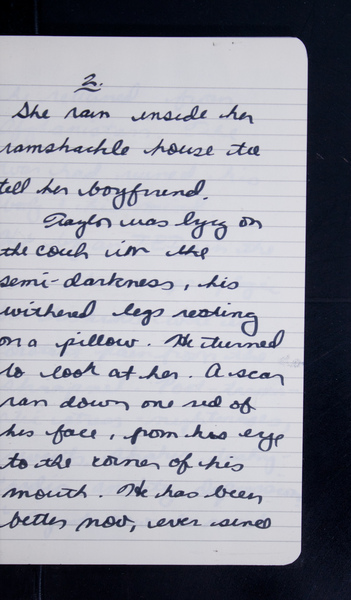 2.
She ran inside her
ramshackle house to
tell her boyfriend.
Taylor was lying on
the couch in the
semi-darkness, his
withered legs resting
on a pillow. He turned
to look at her. A scar
ran down one sid of
his face, from his eye
to the corner of his
mouth. He has been
better now, ever since